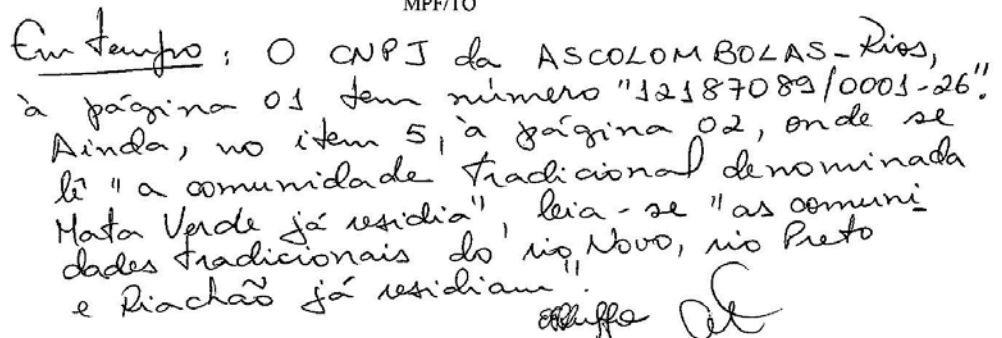 MPF/TO
Em tempo: O CNPJ da ASCOLOMBOLAS-Rios,
à página 01 tem número "12187089/0001-26".
Ainda, no item 5, à página 02, onde se
lê "a comunidade tradicional denominada
Mata Verde já residia", leia-se "as comuni-
dades tradicionais do rio Novo, rio Preto
e Riachão já residiam".